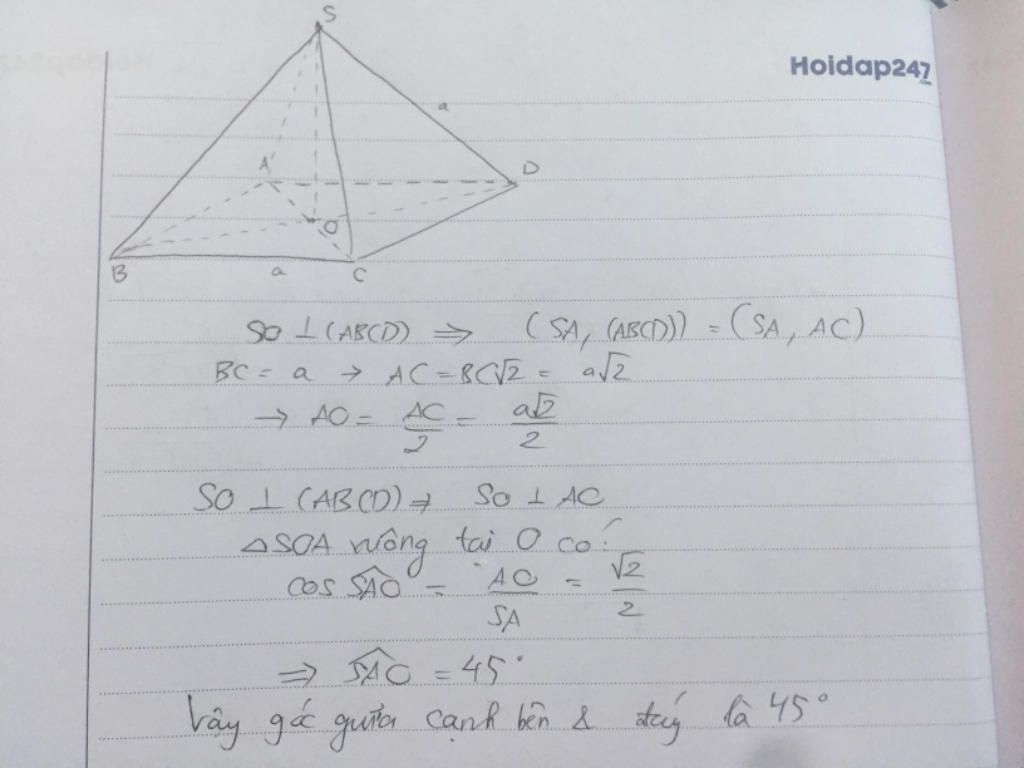 S
Hoidap247
.com
a
A
D
O
B
a
C
SO ⊥ (ABCD) ⇒ (SA, (ABCD)) = (SA, AC)
BC = a → AC = BC√2 = a√2
→ AO = AC/2 = a√2/2
SO ⊥ (ABCD) → SO ⊥ AC
△SOA vuông tại O có:
cos SAO = AO/SA = √2/2
⇒ SAO = 45°
Vậy góc giữa cạnh bên & đáy là 45°